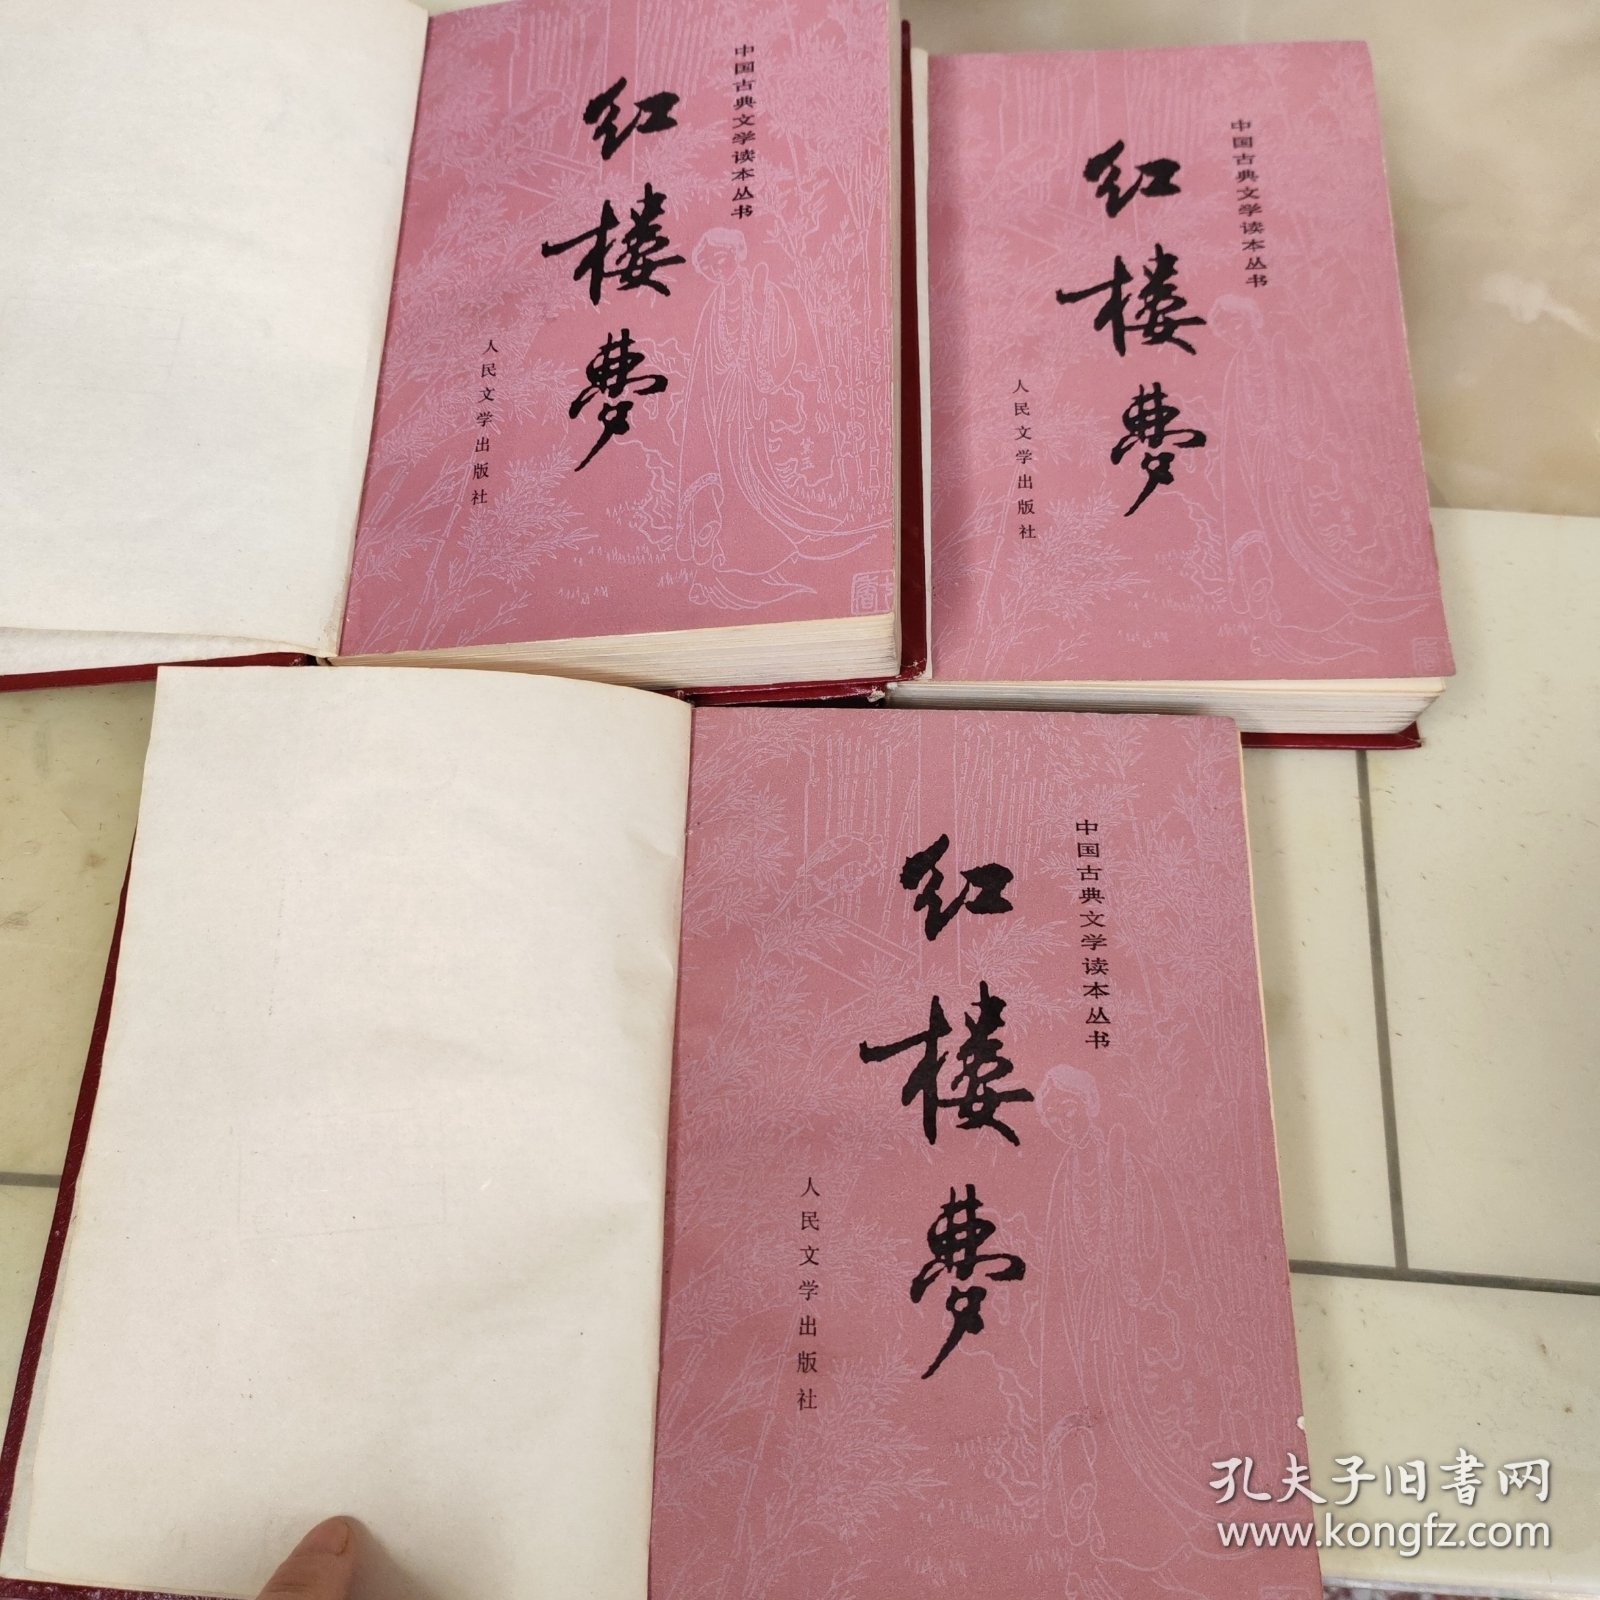 中国古典文学读本丛书
红楼梦
人民文学出版社
中国古典文学读本丛书
红楼梦
人民文学出版社
中国古典文学读本丛书
红楼梦
人民文学出版社
黛玉
孔夫子旧书网
www.kongfz.com